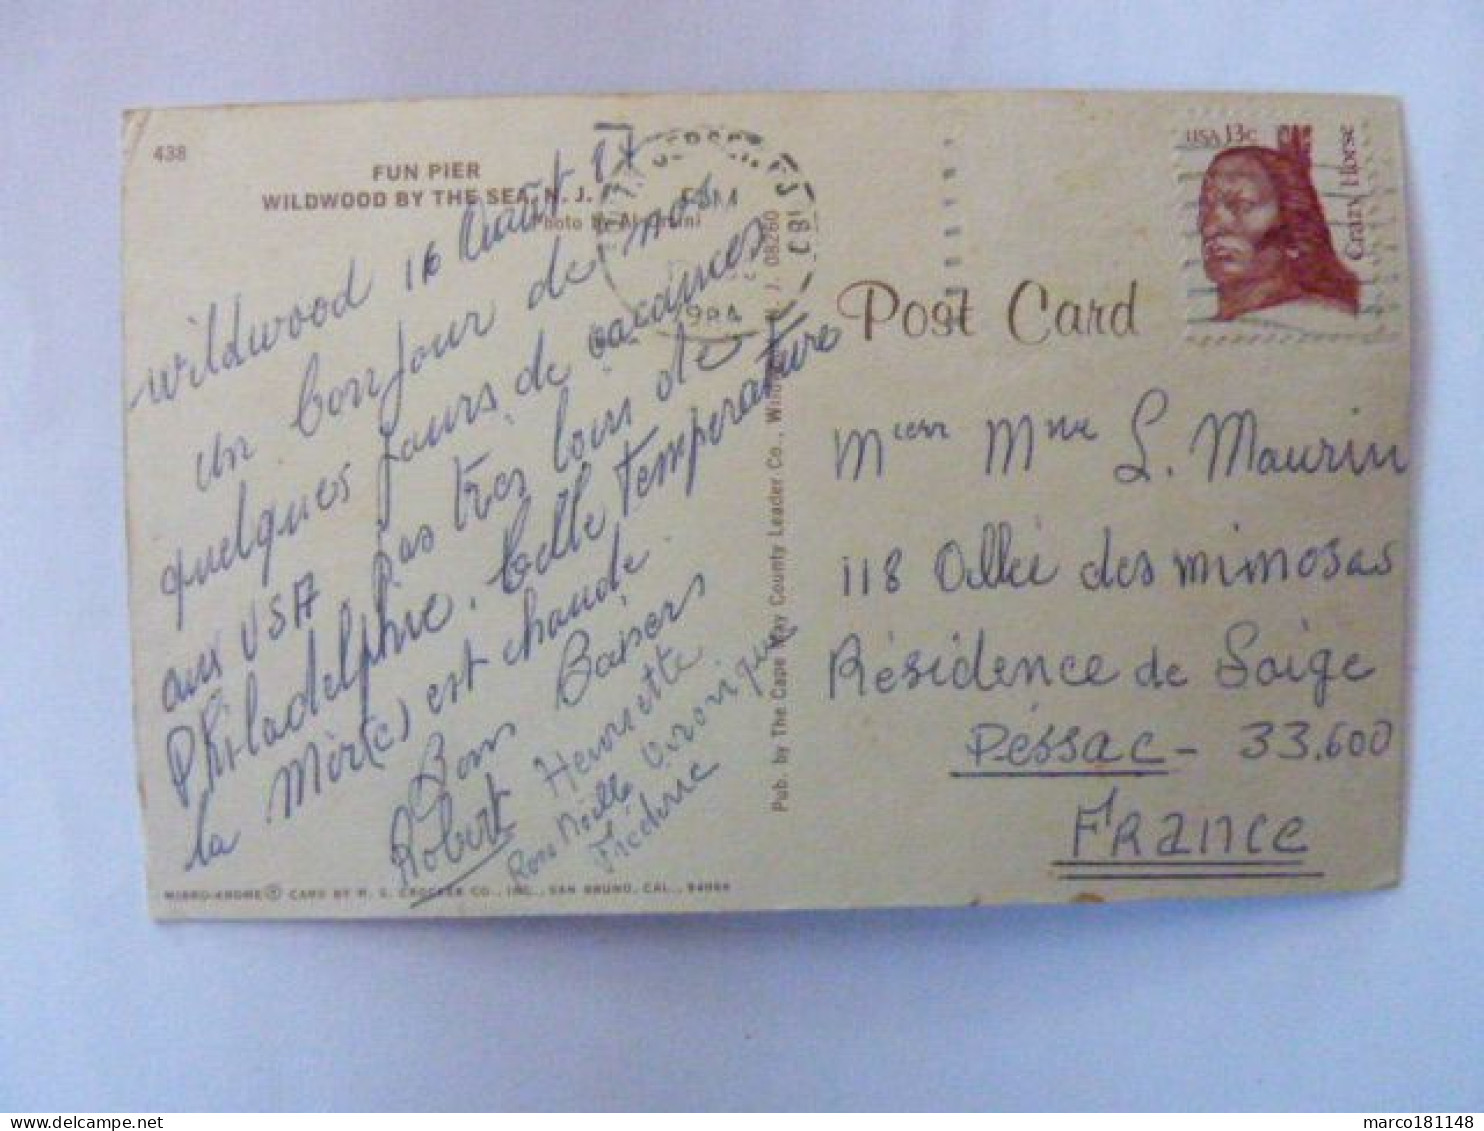 438
FUN PIER
WILDWOOD BY THE SEA, N. J.
Photo by
Wildwood 16 Août 84
un bonjour de nos
quelques jours de vacances
aux USA pas très loin de
Philadelphie. belle temperature
la mer est chaude
Bons Baisers
Robert Henriette
Rose Noëlle Véronique
Frédéric
MIRRO-KROME ® CARD BY H. S. CROCKER CO., INC., SAN BRUNO, CAL., 94066
Pub. by The Cape May County Leader Co., Wildwood, N. J. 08260
JERSEY, US
PM
1984
081
Post Card
USA 13c
Crazy Horse
M et Mme L. Maurin
118 Allée des mimosas
Résidence de Saige
Pessac - 33.600
FRANCE
marco181148